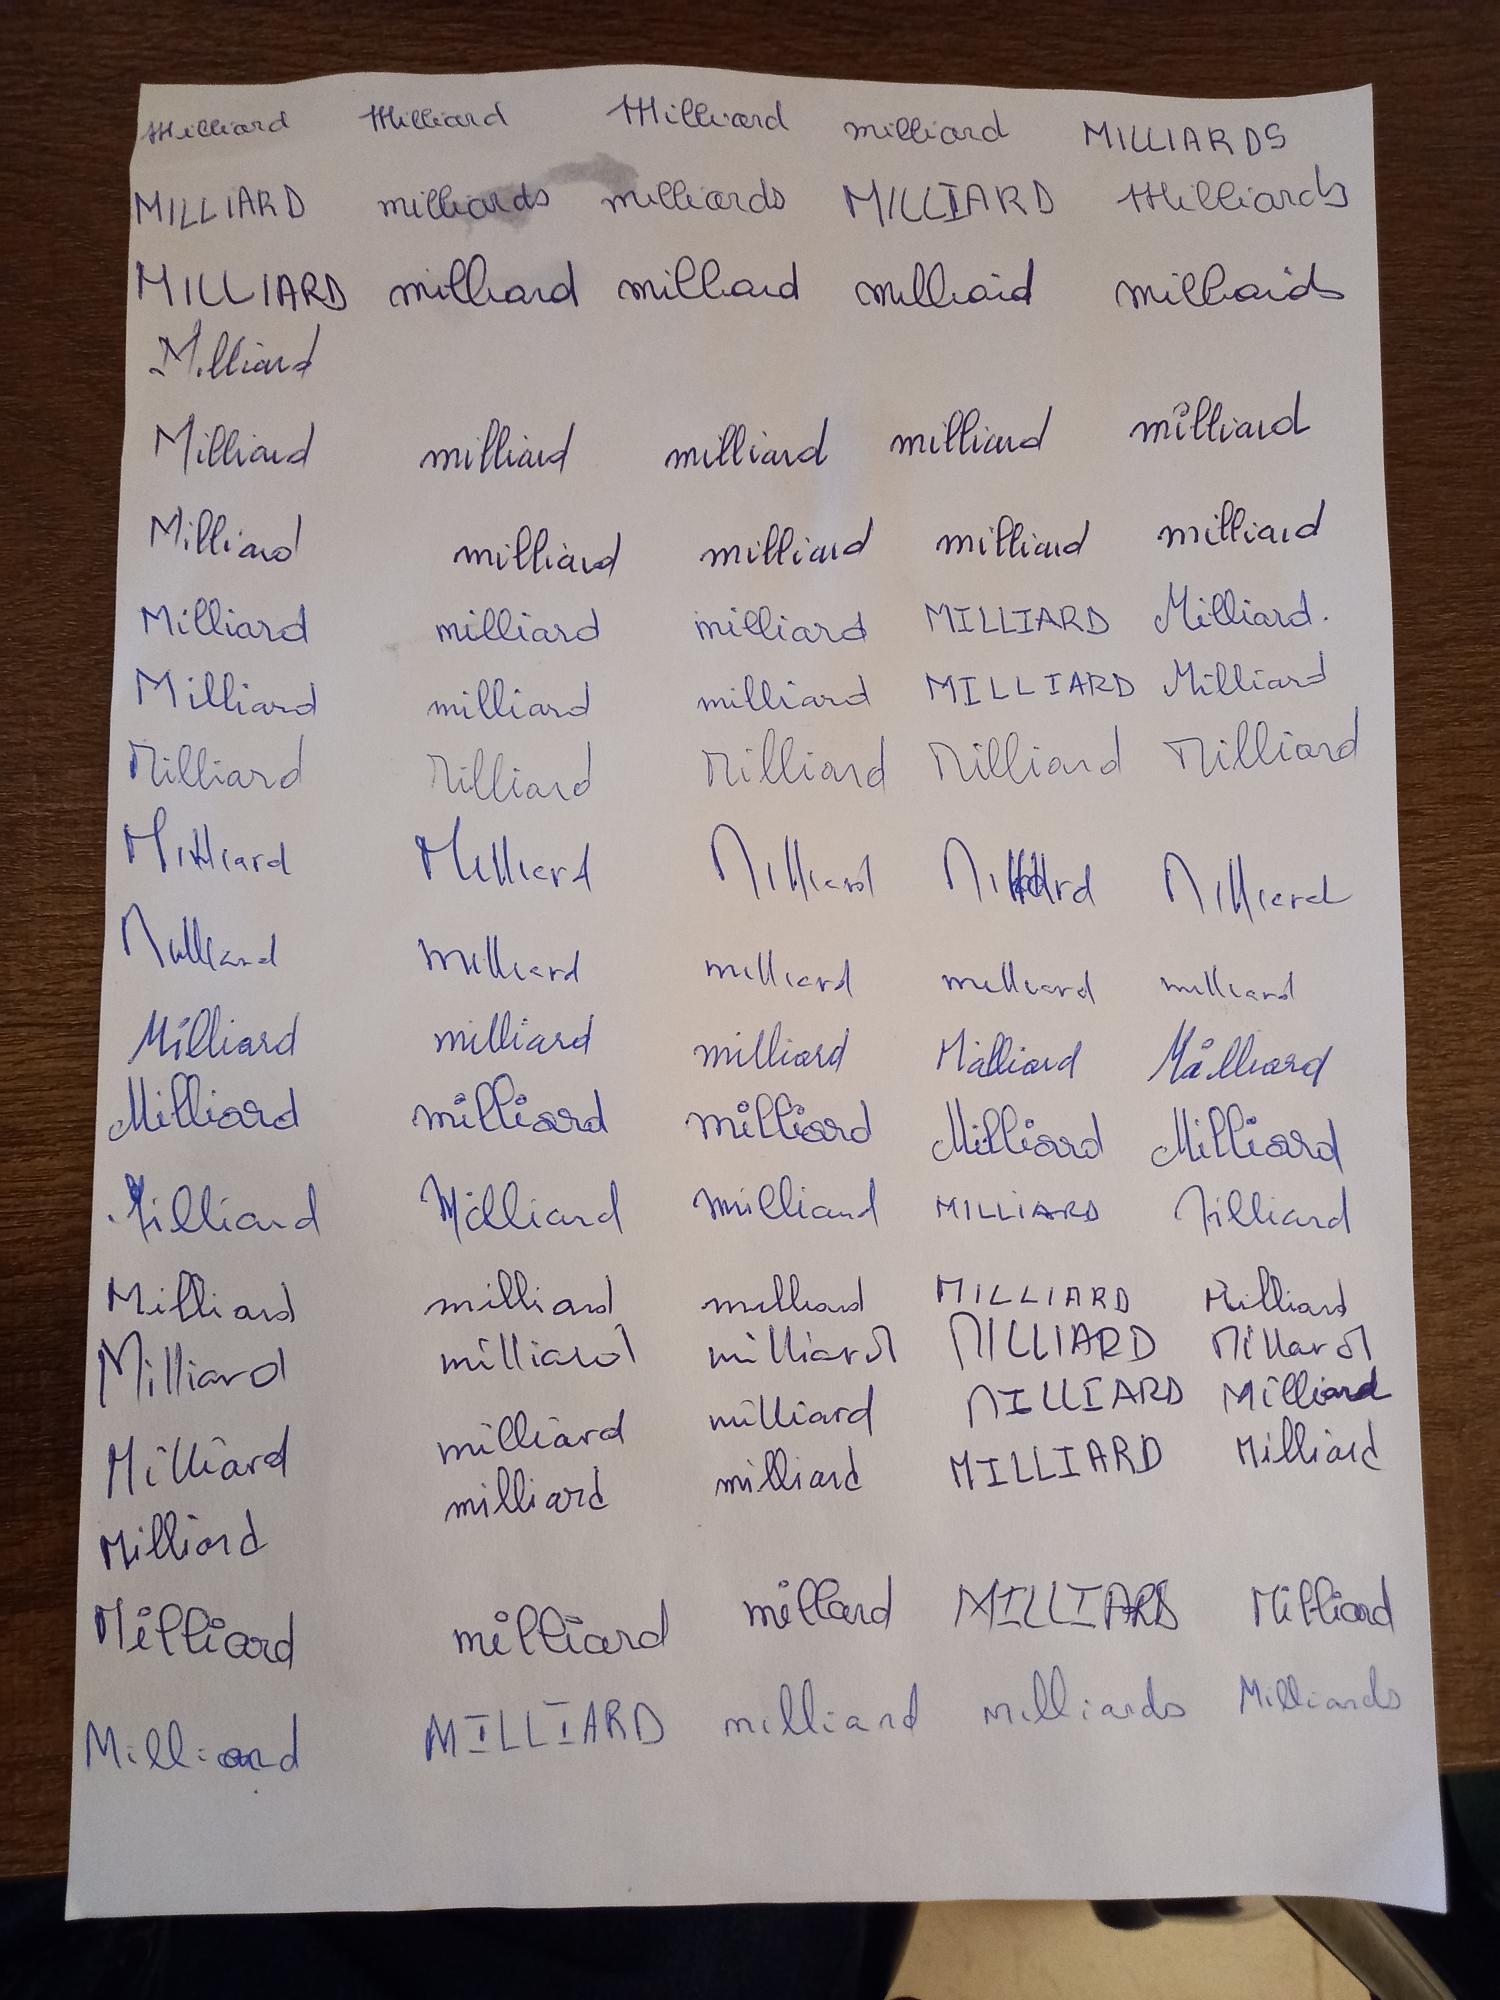 Milliard Milliard Milliard milliard MILLIARDS
MILLIARD milliards milliards MILLIARD Milliards
MILLIARD milliard milliard milliard milliards
Milliard
Milliard milliard milliard milliard milliard
Milliard milliard milliard milliard milliard
Milliard milliard milliard MILLIARD Milliard.
Milliard milliard milliard MILLIARD Milliard
Milliard Milliard Milliard Milliard Milliard
Milliard Milliard Milliard Milliard
Milliard milliard milliard milliard milliard
Milliard milliard milliard Milliard Milliard
Milliard milliard milliard Milliard Milliard
Milliard Milliard Milliard MILLIARD Milliard
Milliard milliard milliard MILLIARD Milliard
Milliard milliard milliard MILLIARD Milliard
Milliard milliard milliard MILLIARD Milliard
Milliard milliard milliard MILLIARD Milliard
Milliard milliard millard MILLIARD Milliard
Milliard MILLIARD milliard milliards Milliards